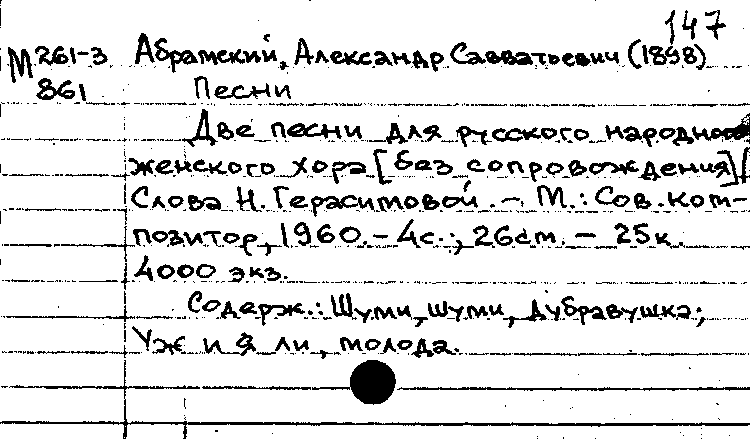 147
М 261-3 Абрамский, Александр Савватьевич (1898)
861 Песни
Две песни для русского народного
женского хора [без сопровождения] /
Слова Н. Герасимовой. - М.: Сов. ком-
позитор, 1960. - 4с.; 26см. - 25к.
4000 экз.
Содерж.: Шуми, шуми, дубравушка;
Уж и я ли, молода.